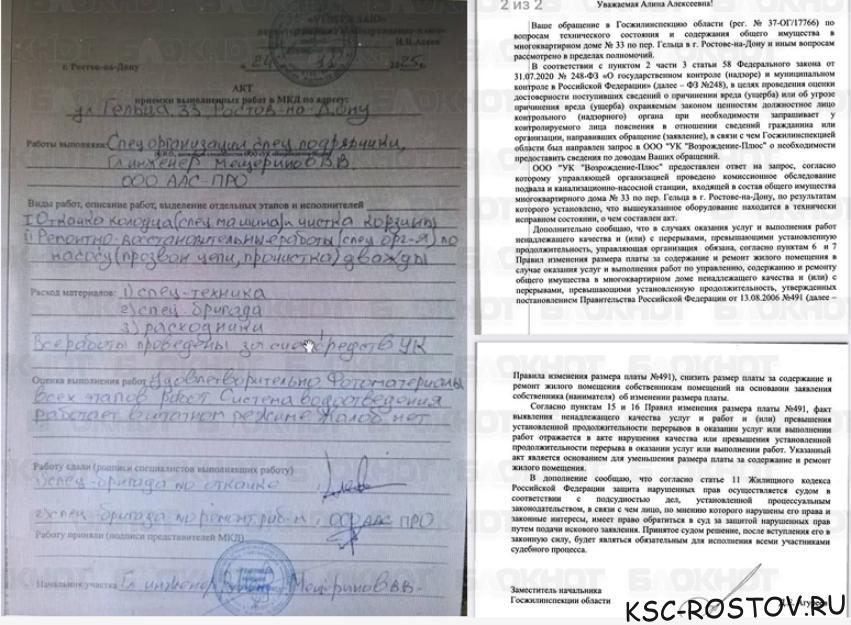 «УТВЕРЖДАЮ»
г. Ростов-на-Дону
АКТ
приемки выполненных работ в МКД по адресу:
ул. Гельца, 33 Ростов-на-Дону
Работы выполняли: Спец организации спец подрядчики,
Гл инженер Мещеринов В.В.
ООО ААС-ПРО
Виды работ, описание работ, выделение отдельных этапов и исполнителей
I Откачка колодца (спец машина) и чистка корзины
II Ремонтно-восстановительные работы (спец орг-я) по
насосу (прозвон цепи, прочистка) дважды
Расход материалов: 1) спец-техника
2) спец-бригада
3) расходники
Все работы проведены за счёт средств УК
Оценка выполнения работ Удовлетворительно Фотоматериалы
всех этапов работ Система водоотведения
работает в штатном режиме Жалоб нет
Работу сдали (подписи специалистов выполнявших работу)
1) спец-бригада по откачке
2) спец-бригада по ремонт раб-м ООО ААС ПРО
Работу приняли (подписи представителей МКД)
Начальник участка Гл инженер Мещеринов В.В.
2 из 2
Уважаемая Алина Алексеевна!
Ваше обращение в Госжилинспекцию области (рег. № 37-ОГ/17766) по
вопросам технического состояния и содержания общего имущества в
многоквартирном доме № 33 по пер. Гельца в г. Ростове-на-Дону и иным вопросам
рассмотрено в пределах полномочий.
В соответствии с пунктом 2 части 3 статьи 58 Федерального закона от
31.07.2020 № 248-ФЗ «О государственном контроле (надзоре) и муниципальном
контроле в Российской Федерации» (далее – ФЗ №248), в целях проведения оценки
достоверности поступивших сведений о причинении вреда (ущерба) или об угрозе
причинения вреда (ущерба) охраняемым законом ценностям должностное лицо
контрольного (надзорного) органа при необходимости запрашивает у
контролируемого лица пояснения в отношении сведений гражданина или
организации, направивших обращение (заявление), в связи с чем Госжилинспекцией
области был направлен запрос в ООО "УК "Возрождение-Плюс" о необходимости
предоставить сведения по доводам Ваших обращений.
ООО "УК "Возрождение-Плюс" предоставлен ответ на запрос, согласно
которому управляющей организацией проведено комиссионное обследование
подвала и канализационно-насосной станции, входящей в состав общего имущества
многоквартирного дома № 33 по пер. Гельца в г. Ростове-на-Дону, по результатам
которого установлено, что вышеуказанное оборудование находится в технически
исправном состоянии, о чем составлен акт.
Дополнительно сообщаю, что в случаях оказания услуг и выполнения работ
ненадлежащего качества и (или) с перерывами, превышающими установленную
продолжительность, управляющая организация обязана, согласно пунктам 6 и 7
Правил изменения размера платы за содержание и ремонт жилого помещения в
случае оказания услуг и выполнения работ по управлению, содержанию и ремонту
общего имущества в многоквартирном доме ненадлежащего качества и (или) с
перерывами, превышающими установленную продолжительность, утвержденных
постановлением Правительства Российской Федерации от 13.08.2006 №491 (далее –
Правила изменения размера платы №491), снизить размер платы за содержание и
ремонт жилого помещения собственникам помещений на основании заявления
собственника (нанимателя) об изменении размера платы.
Согласно пунктам 15 и 16 Правил изменения размера платы №491, факт
выявления ненадлежащего качества услуг и работ и (или) превышения
установленной продолжительности перерывов в оказании услуг или выполнении
работ отражается в акте нарушения качества или превышения установленной
продолжительности перерыва в оказании услуг или выполнении работ. Указанный
акт является основанием для уменьшения размера платы за содержание и ремонт
жилого помещения.
В дополнение сообщаю, что согласно статье 11 Жилищного кодекса
Российской Федерации защита нарушенных прав осуществляется судом в
соответствии с подсудностью дел, установленной процессуальным
законодательством, в связи с чем лицо, по мнению которого нарушены его права и
законные интересы, имеет право обратиться в суд за защитой нарушенных прав
путем подачи искового заявления. Принятое судом решение, после вступления его в
законную силу, будет являться обязательным для исполнения всеми участниками
судебного процесса.
Заместитель начальника
Госжилинспекции области
KSC-ROSTOV.RU
БЛОКНОТ